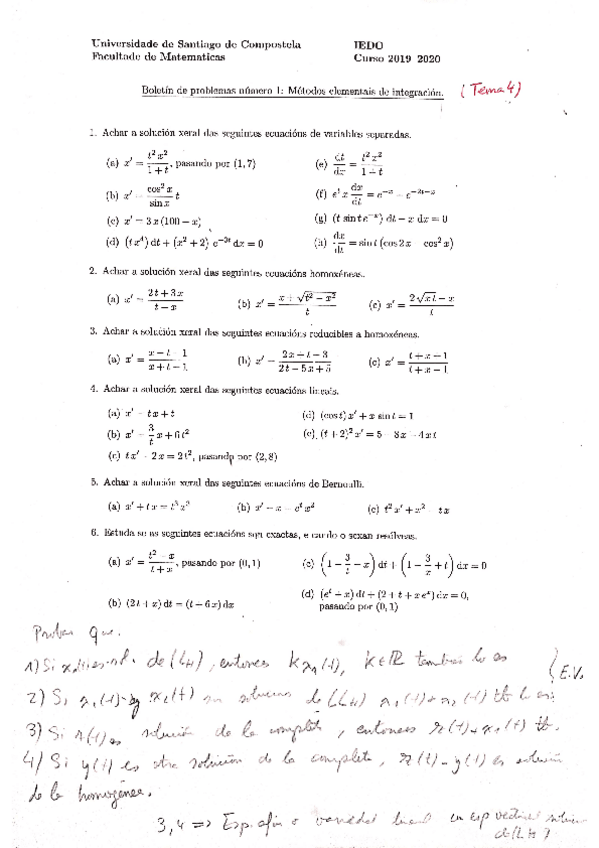 Universidade de Santiago de Compostela IEDO
Facultade de Matemáticas Curso 2019-2020
Boletín de problemas número 1: Métodos elementais de integración. (Tema 4)
1. Achar a solución xeral das seguintes ecuacións de variables separadas.
(a) x' = t²x²/(1+t), pasando por (1,7)
(b) x' = (cos² x/sin x) t
(c) x' = 3x(100 − x)
(d) (t x⁴) dt + (x² + 2) e^(−3t) dx = 0
(e) dt/dx = t²x²/(1+t)
(f) e^t x dx/dt = e^(−x) + e^(−2t−x)
(g) (t sin t e^(−x)) dt − x dx = 0
(h) dx/dt = sin t (cos 2x − cos² x)
2. Achar a solución xeral das seguintes ecuacións homoxéneas.
(a) x' = (2t + 3x)/(t − x) (b) x' = (x + √(t² − x²))/t (c) x' = (2√(xt) − x)/t
3. Achar a solución xeral das seguintes ecuacións reducibles a homoxéneas.
(a) x' = (x − t − 1)/(x + t − 1) (b) x' = (2x + t − 3)/(2t − 5x + 5) (c) x' = (t + x − 1)/(t + x − 1)
4. Achar a solución xeral das seguintes ecuacións lineais.
(a) x' = tx + t (d) (cos t) x' + x sin t = 1
(b) x' = (3/t) x + 6t² (e) (t + 2)² x' = 5 − 8x − 4xt
(c) t x' − 2x = 2t², pasando por (2,8)
5. Achar a solución xeral das seguintes ecuacións de Bernoulli.
(a) x' + tx = t³x³ (b) x' − x = e^t x² (c) t²x' + x² = tx
6. Estuda se as seguintes ecuacións son exactas, e cando o sexan resólveas.
(a) x' = (t² − x)/(t + x), pasando por (0,1) (c) (1 − 3/t − x) dt + (1 − 3/x + t) dx = 0
(b) (2t + x) dt = (t + 6x) dx (d) (e^t + x) dt + (2 + t + x e^x) dx = 0,
pasando por (0,1)
Probar que:
1) Si x₁(t) es sol. de (LH), entonces k x₁(t), k∈ℝ también lo es
2) Si x₁(t) y x₂(t) son soluciones de (LH) x₁(t)+x₂(t) tb lo es (E.V.
3) Si x(t) es solución de la completa, entonces x(t)+x₁(t) tb.
4) Si y(t) es otra solución de la completa, x(t)−y(t) es solución
de la homogénea.
3,4 => Esp. afín o variedad lineal esp vectorial
de (LH)